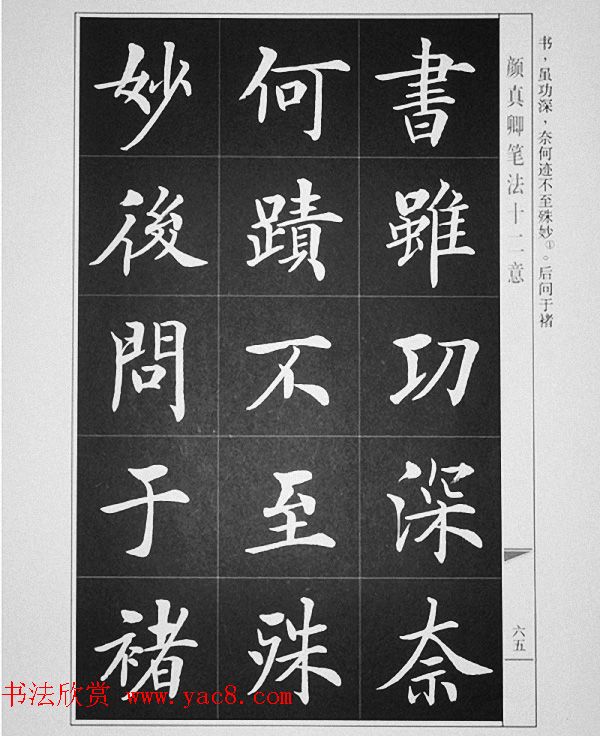 书，虽功深，奈何迹不至殊妙①。后问于褚
颜真卿笔法十二意
書雖功深奈
何蹟不至殊
妙後問于褚
六五
书法欣赏 www.yac8.com